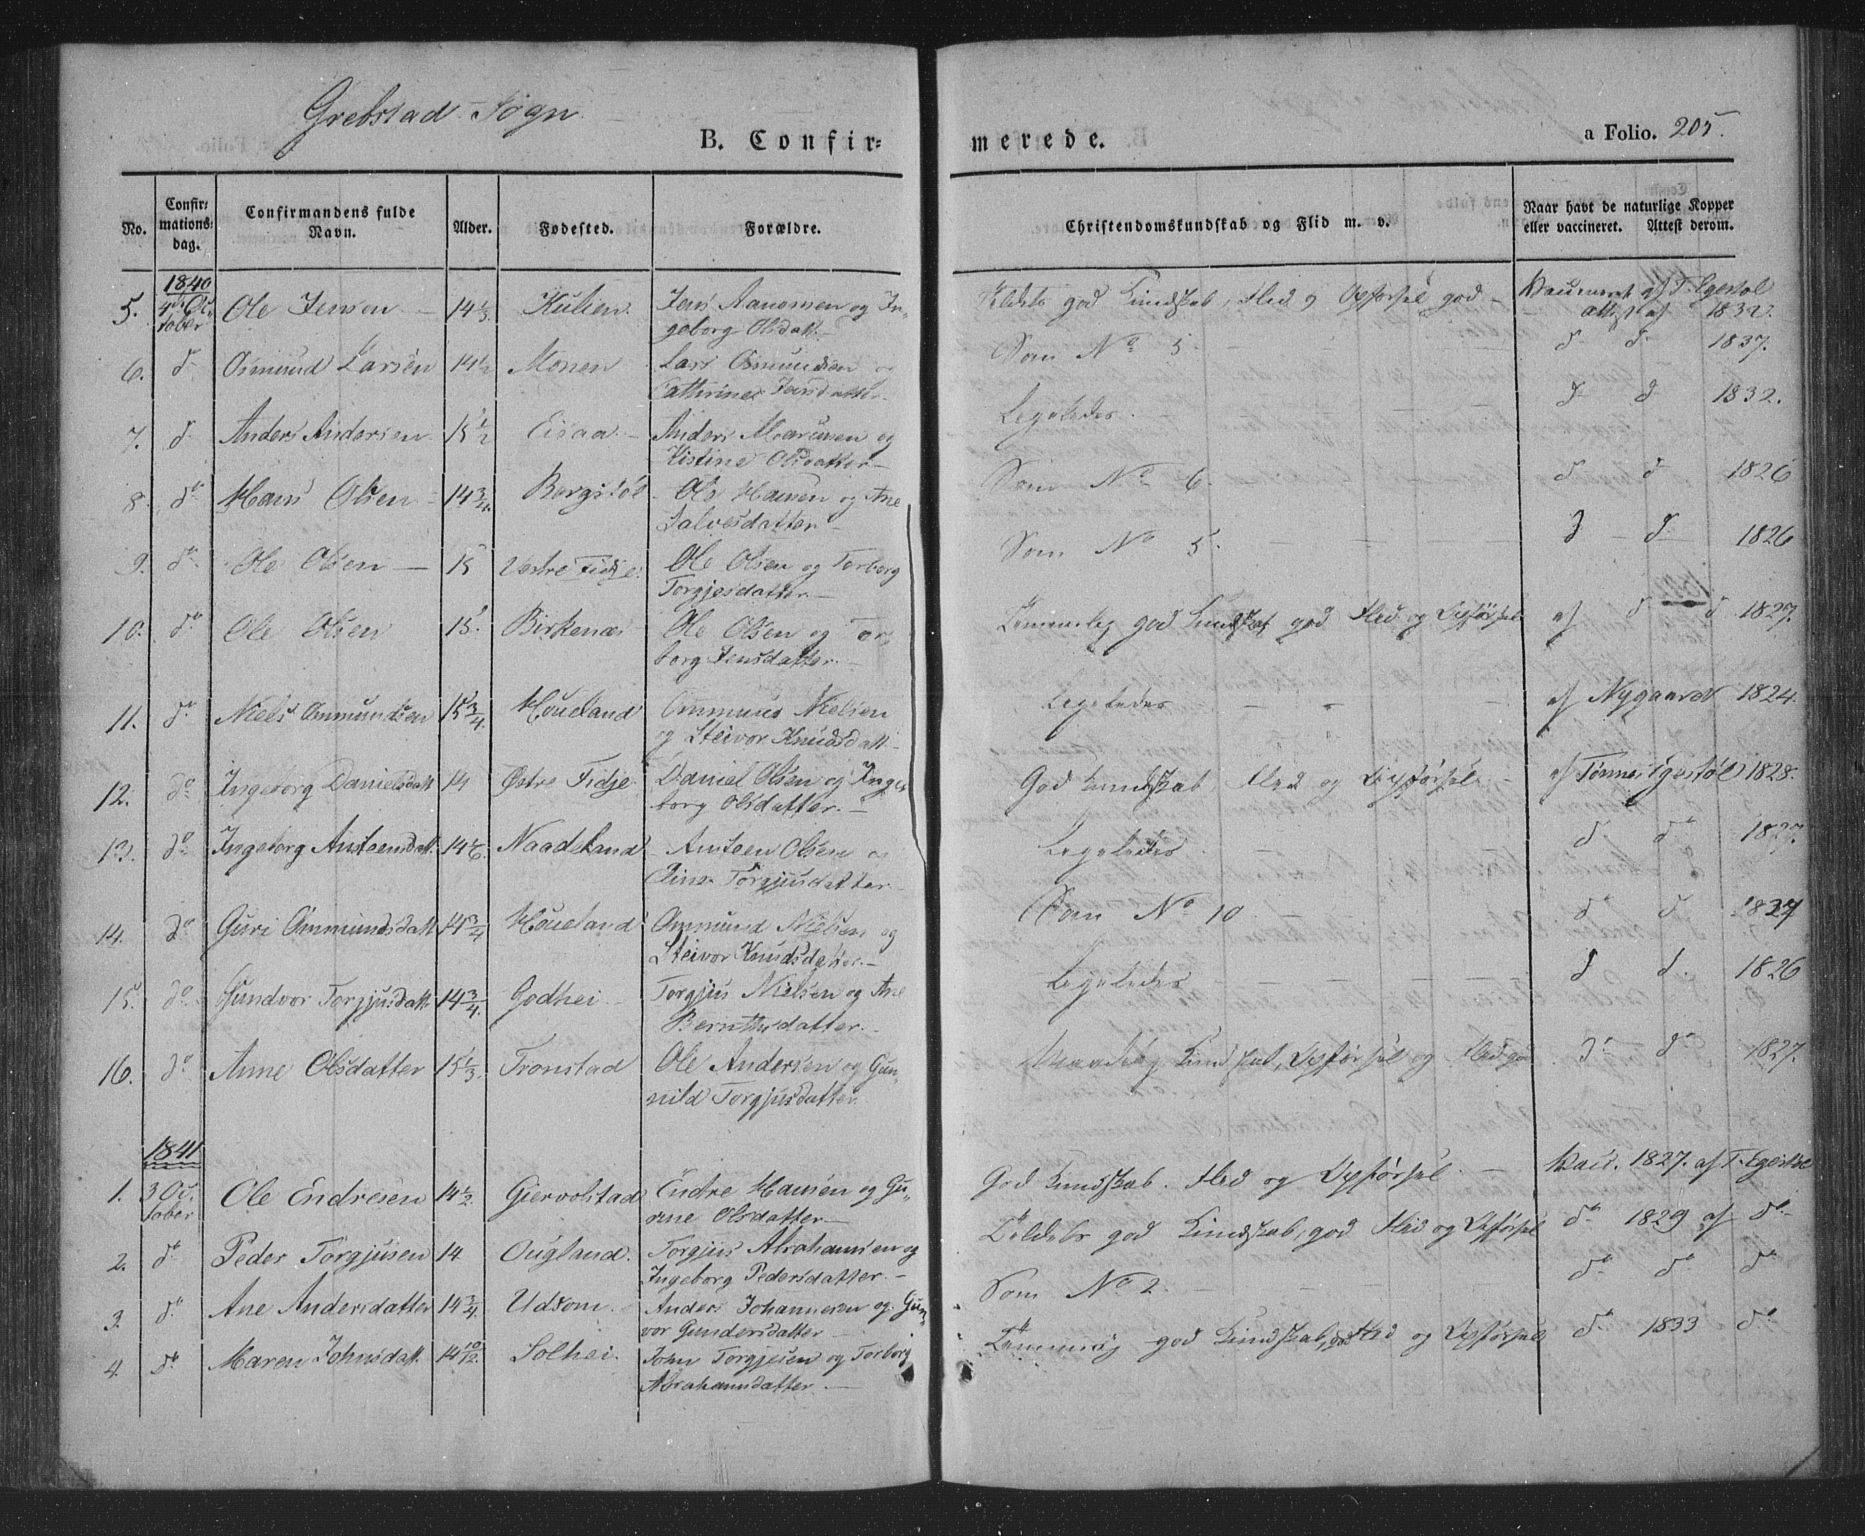 Grebstad Sogn
B. Confir=
merede.
a Folio. 205.
No.
Confir=
mations=
dag.
Confirmandens fulde
Navn.
Alder.
Fødested.
Forældre.
Christendomskundskab og Flid m. v.
Naar havt de naturlige Kopper
eller vaccineret. Attest derom.
1840
5. 4de Oc- Ole Jensen 14 1/3 Kulien Jens Aanonsen og In-
tober geborg Olsdatt. Veldels god Kundskab, Flid og Opførsel god Vaccineret af T. Egestøl
attest af 1832.
6. do Osmund Larsen 14 1/2 Monen Lars Osmundsen og
Cathrine Jensdatter Som No 5. d d 1837.
7. d Anders Andersen 15 1/2 Eisaa Anders Marcusen og
Kistine Olsdatter Legeledes d d 1832.
8. do Hans Olsen 14 3/4 Borgstøl Ole Hansen og Ane
Salvesdatter Som No 6. d d 1826
9. do Ole Olsen 15 Vestre Fidje Ole Olsen og Torborg
Torgjesdatter Som No 5. d d 1826
10. do Ole Olsen 15 Birkenæs Ole Olsen og Tor-
borg Jensdatter. Temmelig god Kundskab god Flid og Opførsel af d d 1827.
11. do Niels Ommundsen 15 3/4 Houeland Ommund Nielsen
og Steivor Knudsdatt Legeledes af Nygaard 1824.
12. do Ingeborg Danielsdatt 14 Østre Fidje Daniel Olsen og Inge-
borg Olsdatter. God Kundskab, Flid og Opførsel af Tønnes Egestøl 1828.
13. do Ingeborg Ansteensdatt. 14 1/6 Naadeland Ansteen Olsen og
Torgjusdatter Legeledes d do 1827.
14. do Guri Ommundsdatt 14 3/4 Houeland Ommund Nielsen og
Steivor Knudsdatter Som No 10 do d 1827
15. do Gundvor Torgjusdatt 14 3/4 Godhei Torgjus Nielsen og Ane
Bernthsdatter. Legeledes d d. 1826
16. do Anne Olsdatter 15 1/3 Tronstad Ole Andersen og Gun-
nild Torgjusdatter Maadelig Kundskab, Opførsel og Flid god do do 1827.
1841
1. 3 Oc- Ole Endresen 14 1/2 Giervolstad Endre Hansen og Gu-
tober rine Olsdatter God Kundskab, Flid og Opførsel Vacc. 1827. af T. Egestøl
2. do Peder Torgjusen 14 Ougland. Torgjus Abrahamsen og
Ingeborg Pedersdatter. Veldels god Kundskab, god Flid og Opførsel do 1829 af do
3. do Ane Andersdatter 14 3/4 Udsom. Anders Johannesen og Gun-
vor Gundersdatter Som No 2. do do do
4. do Maren Johnsdatt. 14 10/12 Solhei. John Torgjesen og Torborg
Abrahamsdatter. Temmelig god Kundskab, god Flid og Opførsel do 1833 do